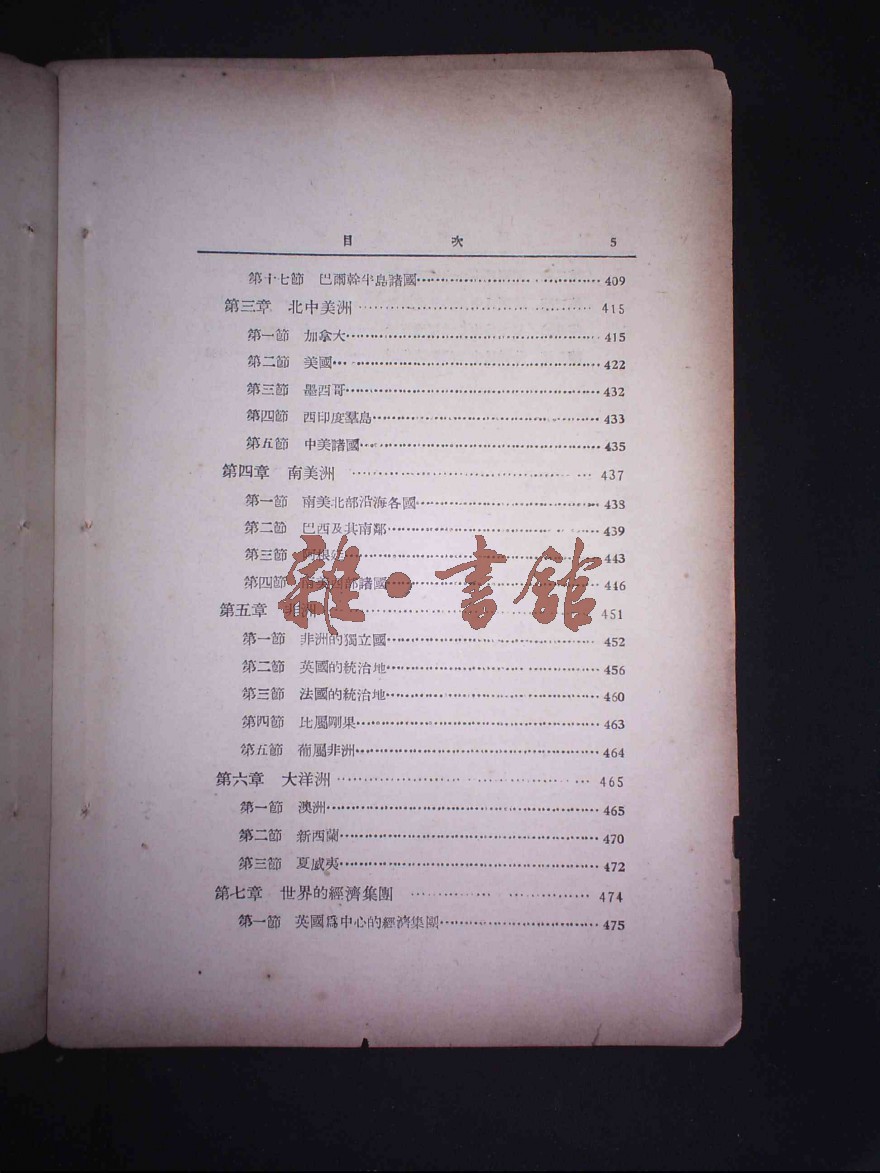 目 次 5
第十七節 巴爾幹半島諸國 409
第三章 北中美洲 415
第一節 加拿大 415
第二節 美國 422
第三節 墨西哥 432
第四節 西印度羣島 433
第五節 中美諸國 435
第四章 南美洲 437
第一節 南美北部沿海各國 438
第二節 巴西及其南鄰 439
第三節 阿根廷 443
第四節 南美西部諸國 446
第五章 非洲 451
第一節 非洲的獨立國 452
第二節 英國的統治地 456
第三節 法國的統治地 460
第四節 比屬剛果 463
第五節 葡屬非洲 464
第六章 大洋洲 465
第一節 澳洲 465
第二節 新西蘭 470
第三節 夏威夷 472
第七章 世界的經濟集團 474
第一節 英國爲中心的經濟集團 475
雜·書館